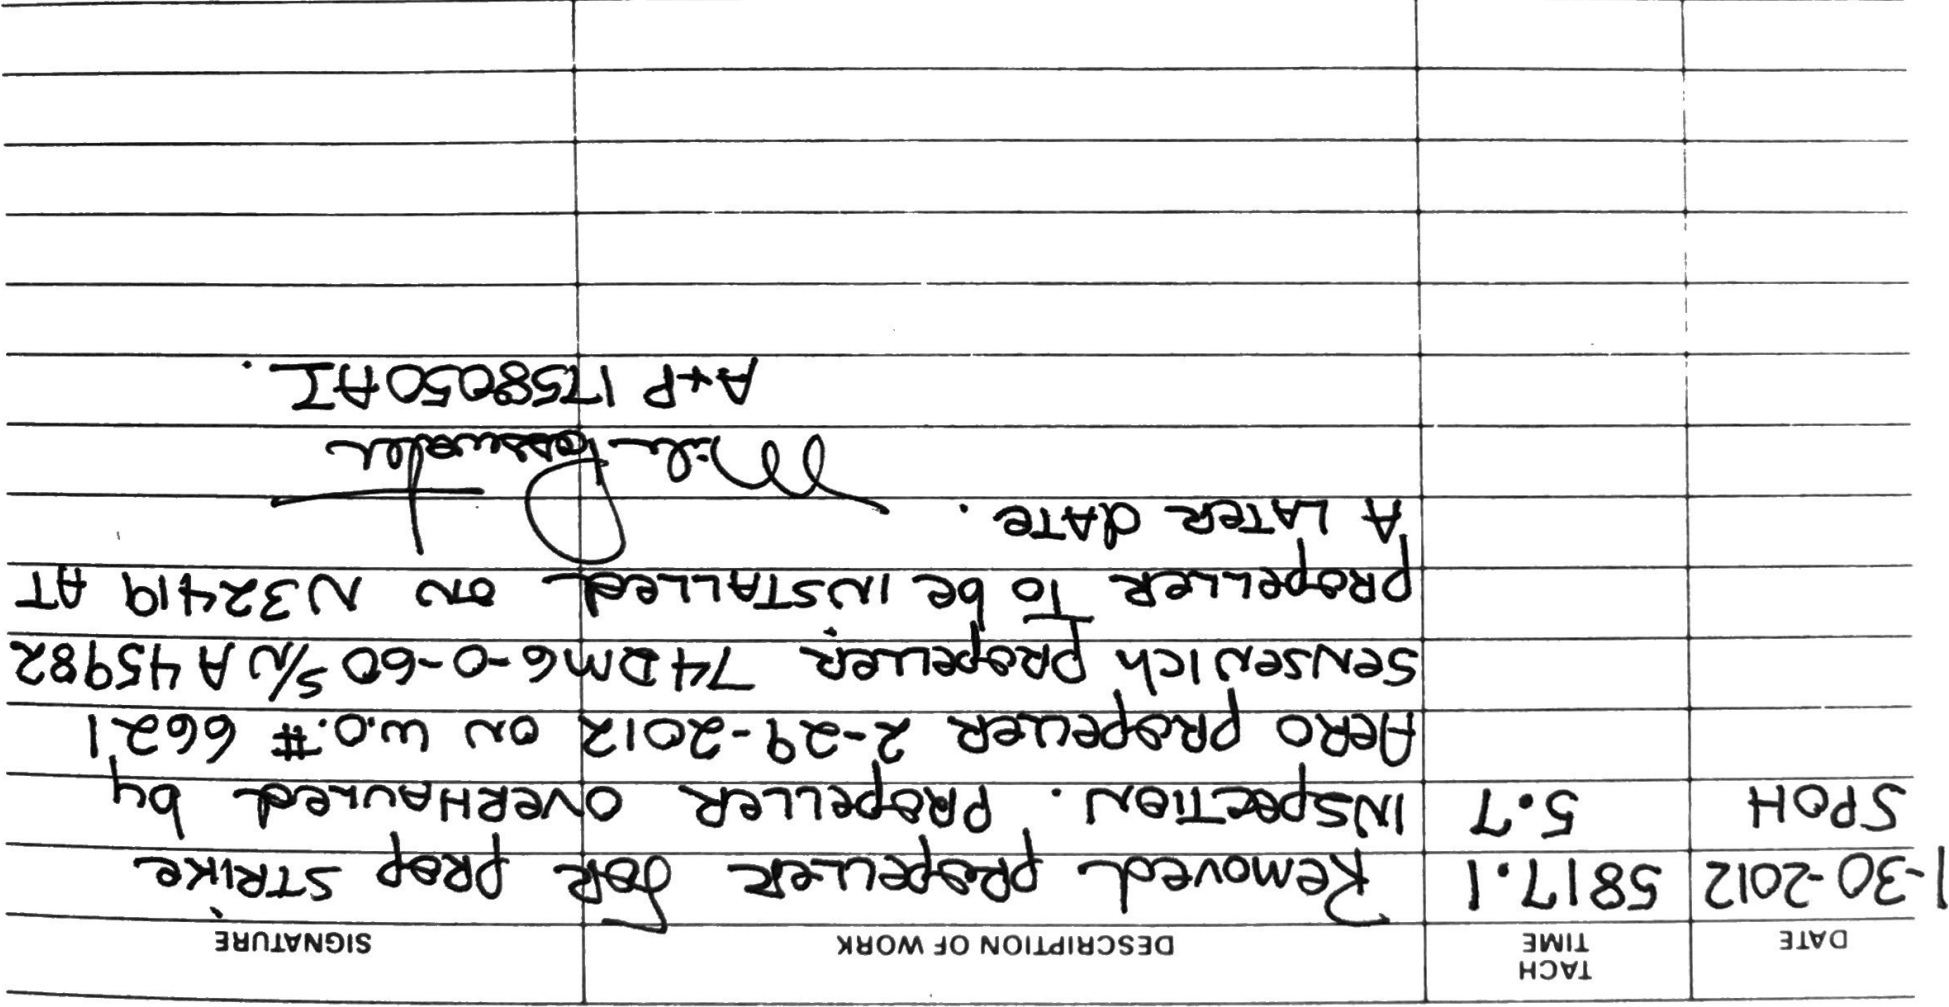 DATE TACH TIME DESCRIPTION OF WORK SIGNATURE
1-30-2012 5817.1 Removed propeller for prop STRIKE
SPOH 5.7 INSPECTION. PROPELLER OVERHAULED by
AERO PROPELLER 2-29-2012 ON W.O.# 6621
SENSENICH PROPELLER 74DM6-0-60 S/N A45982
PROPELLER To be INSTALLED ON N32419 AT
A LATER DATE.
A+P 1758050AI.